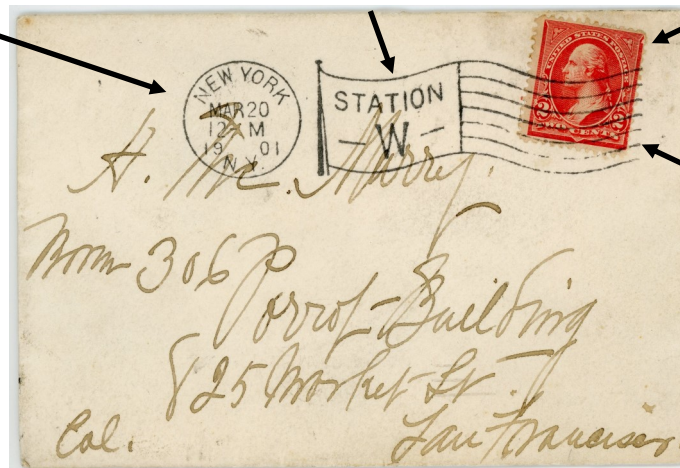 NEW YORK
MAR 20
12 M
19 01
N.Y.
STATION
- W -
UNITED STATES POSTAGE
2 TWO CENTS 2
H. Mc. Murry.
Room 306
Parrot-Building
825 Market St.
San Francisco
Cal.